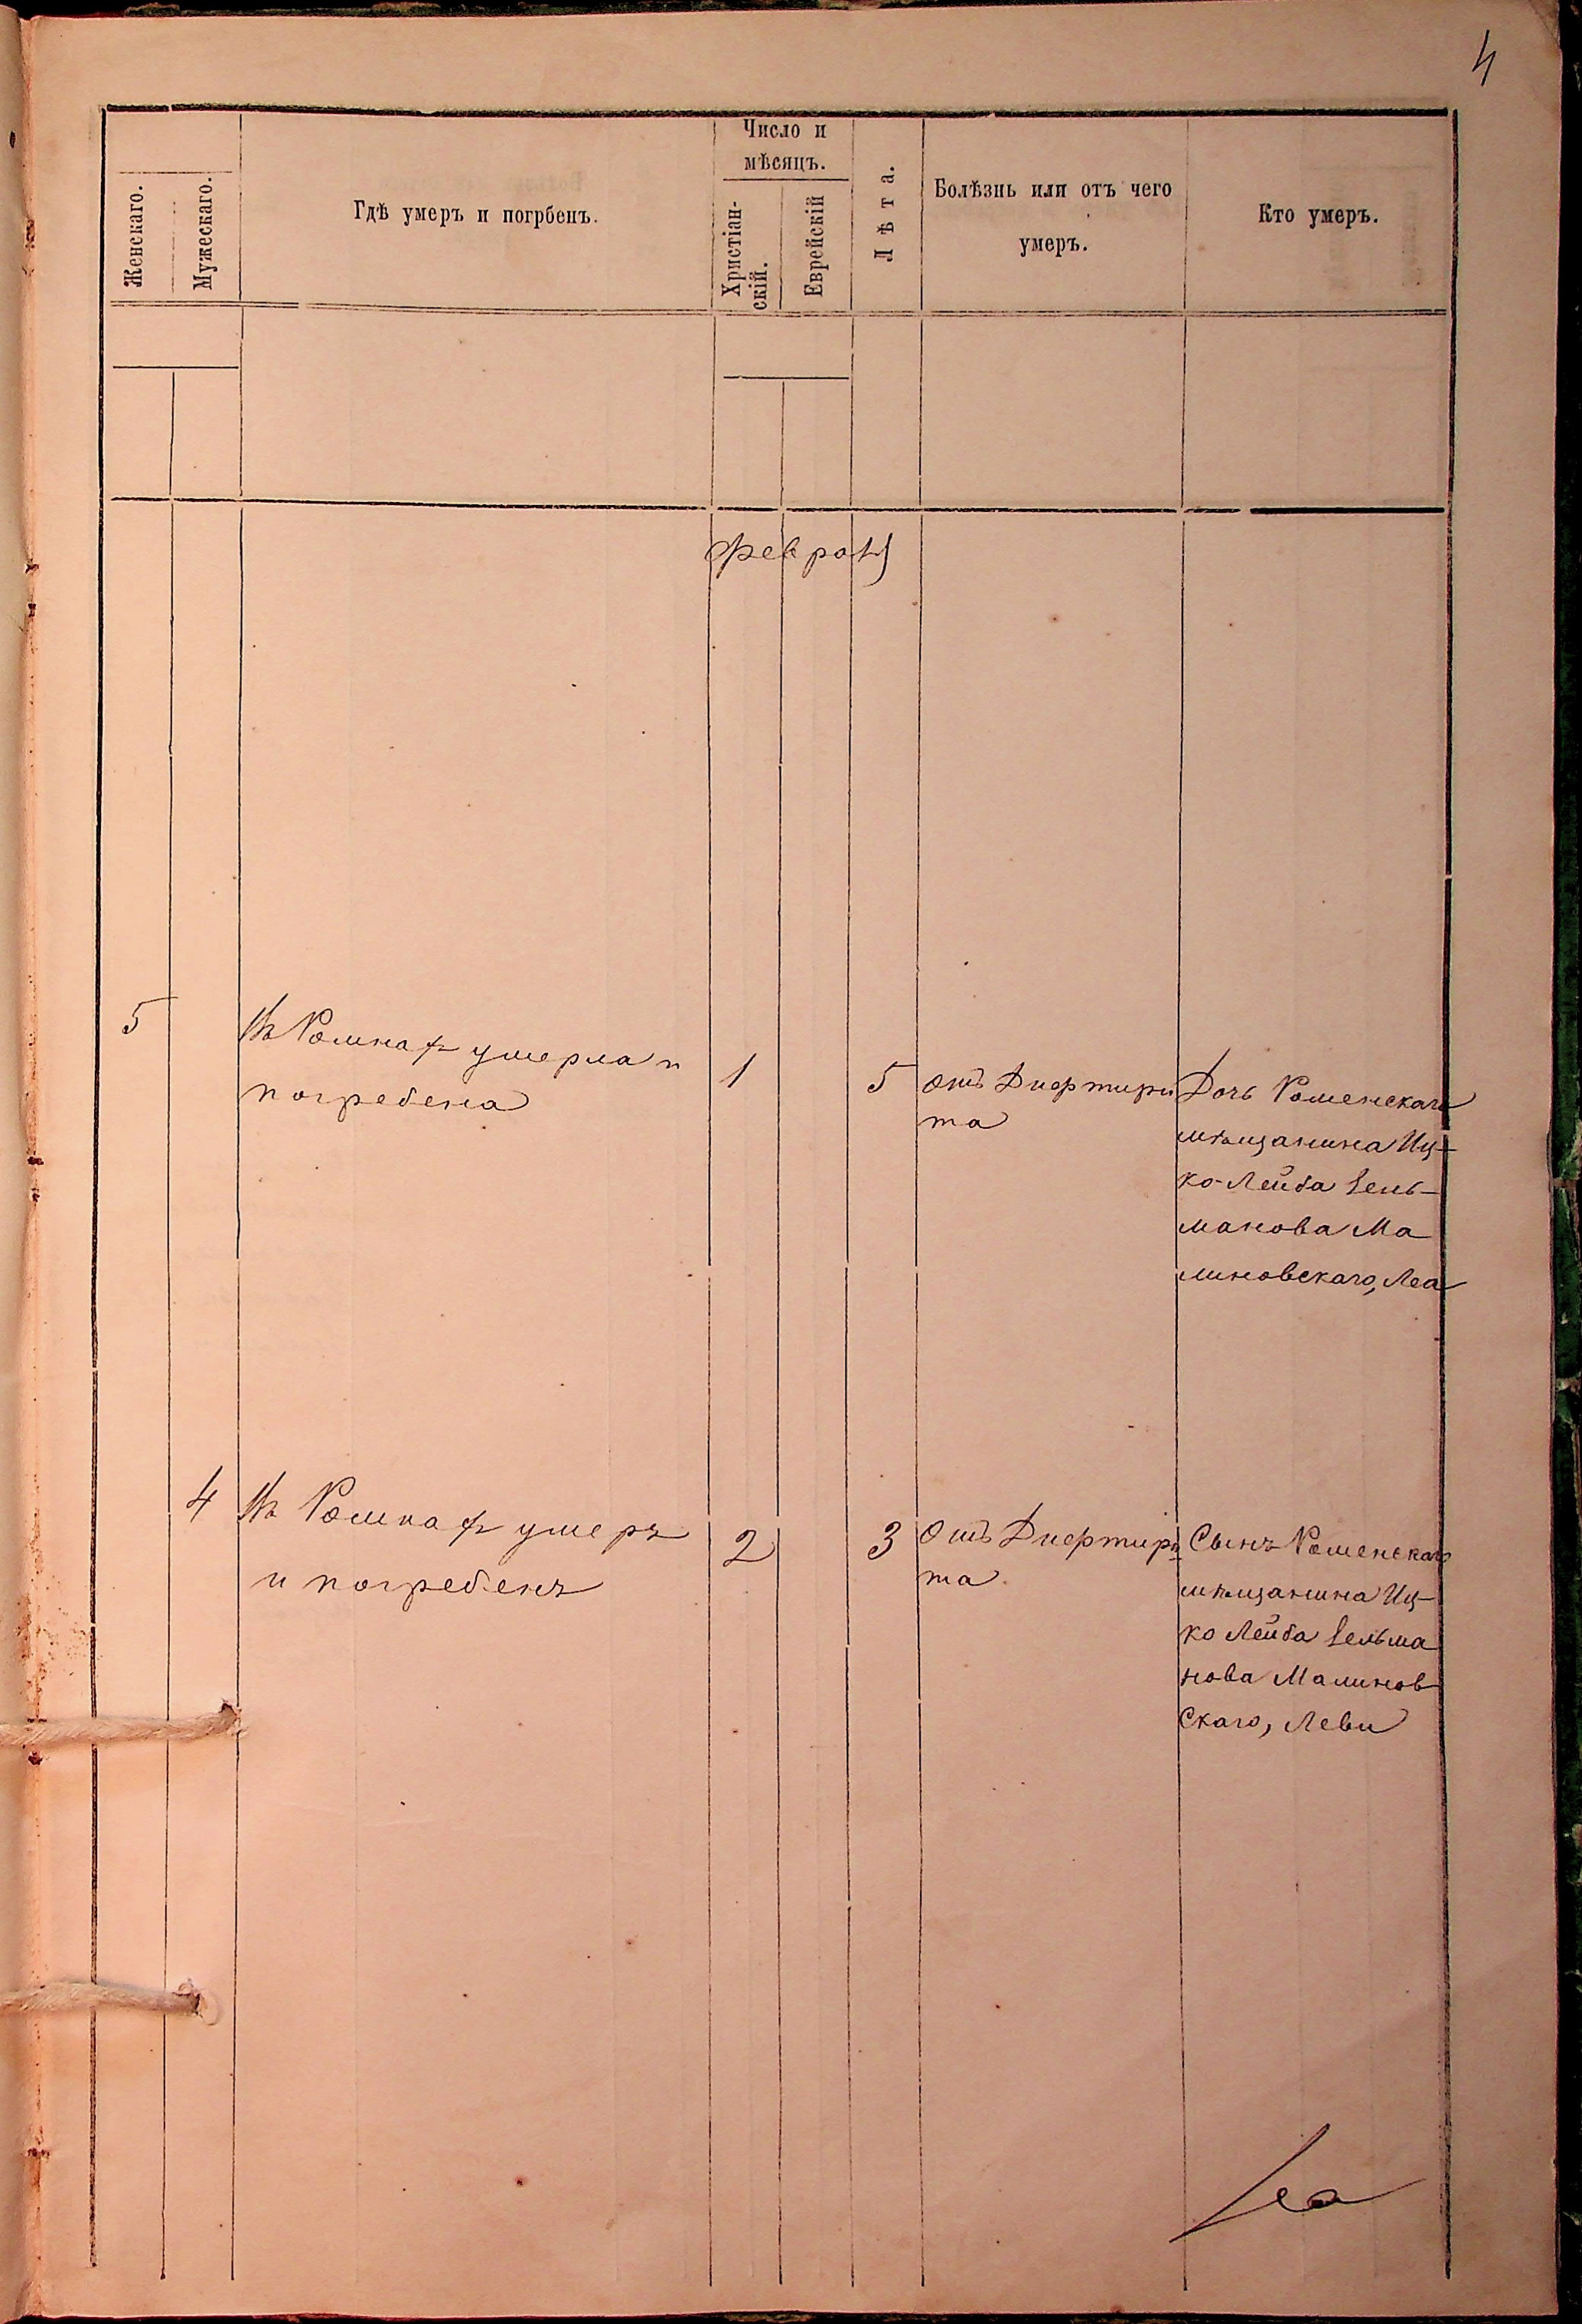 4
Женскаго.
Мужескаго.
Гдѣ умеръ и погрбенъ.
Число и
мѣсяцъ.
Христіан-
скій.
Еврейскій
Лѣта.
Болѣзнь или отъ чего
умеръ.
Кто умеръ.
февраль
5
Въ Ромнахъ умерла и
погребена
1
5
отъ Дифтири
та
Дочь Роменскаго
мѣщанина Иц-
ко-Лейба Зель-
манова Ма
линовскаго, Леа
4
Въ Ромнахъ умеръ
и погребенъ
2
3
отъ Дифтири
та
Сынъ Роменскаго
мѣщанина Иц-
ко Лейба Зельма
нова Малинов
скаго, Леви